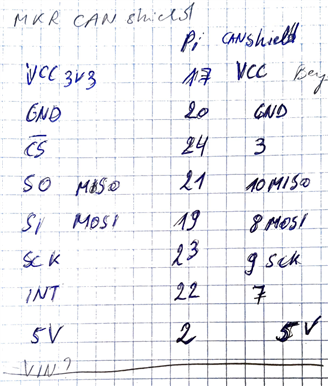 MKR CAN Shield
Pi CAN Shield
VCC 3V3 17 VCC
GND 20 GND
CS 24 3
SO MISO 21 10 MISO
SI MOSI 19 8 MOSI
SCK 23 9 SCK
INT 22 7
5V 2 5V
VIN?